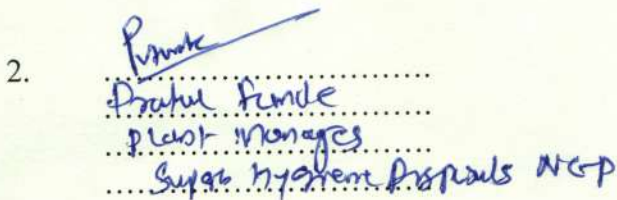 2.
Praful Funde
Plant Manager
Super Hygiene Disposals NGP